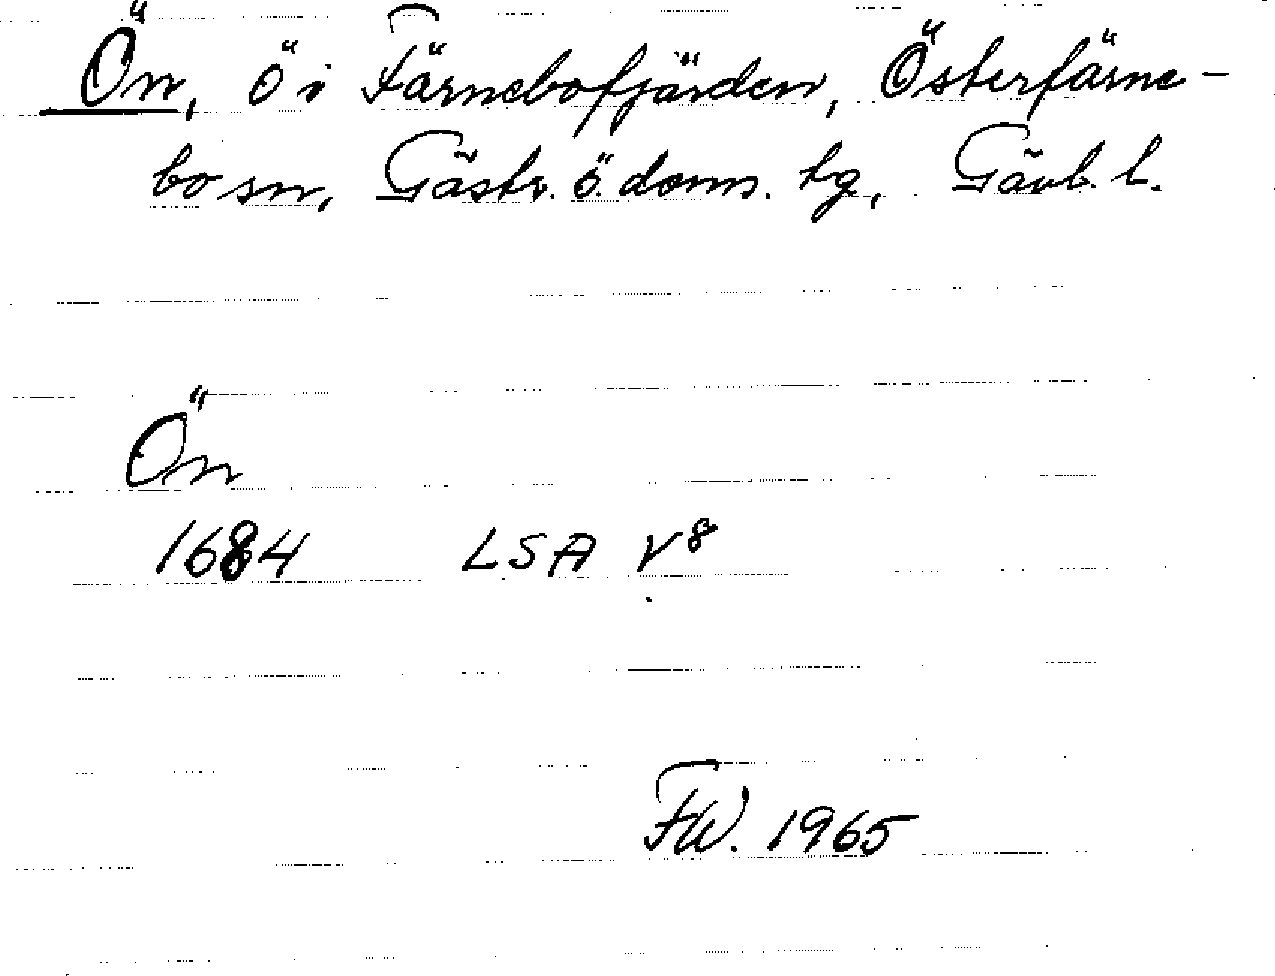 Ön, ö i Färnebofjärden, Österfärne-
bo sn, Gästr. ö. doms. tg, Gävleb. l.
Ön
1684 LSA V⁸
FW. 1965